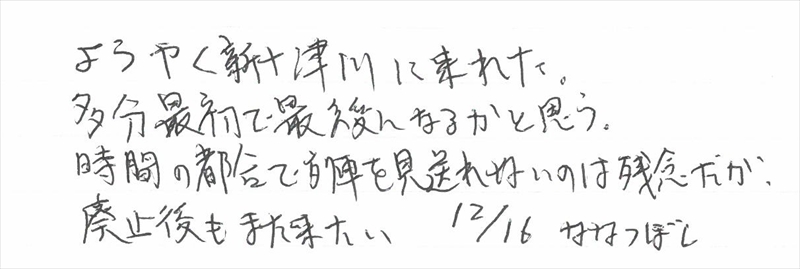 ようやく新十津川に来れた。
多分最初で最後になるかと思う。
時間の都合で列車を見送れないのは残念だが、
廃止後もまた来たい 12/16 ななつぼし